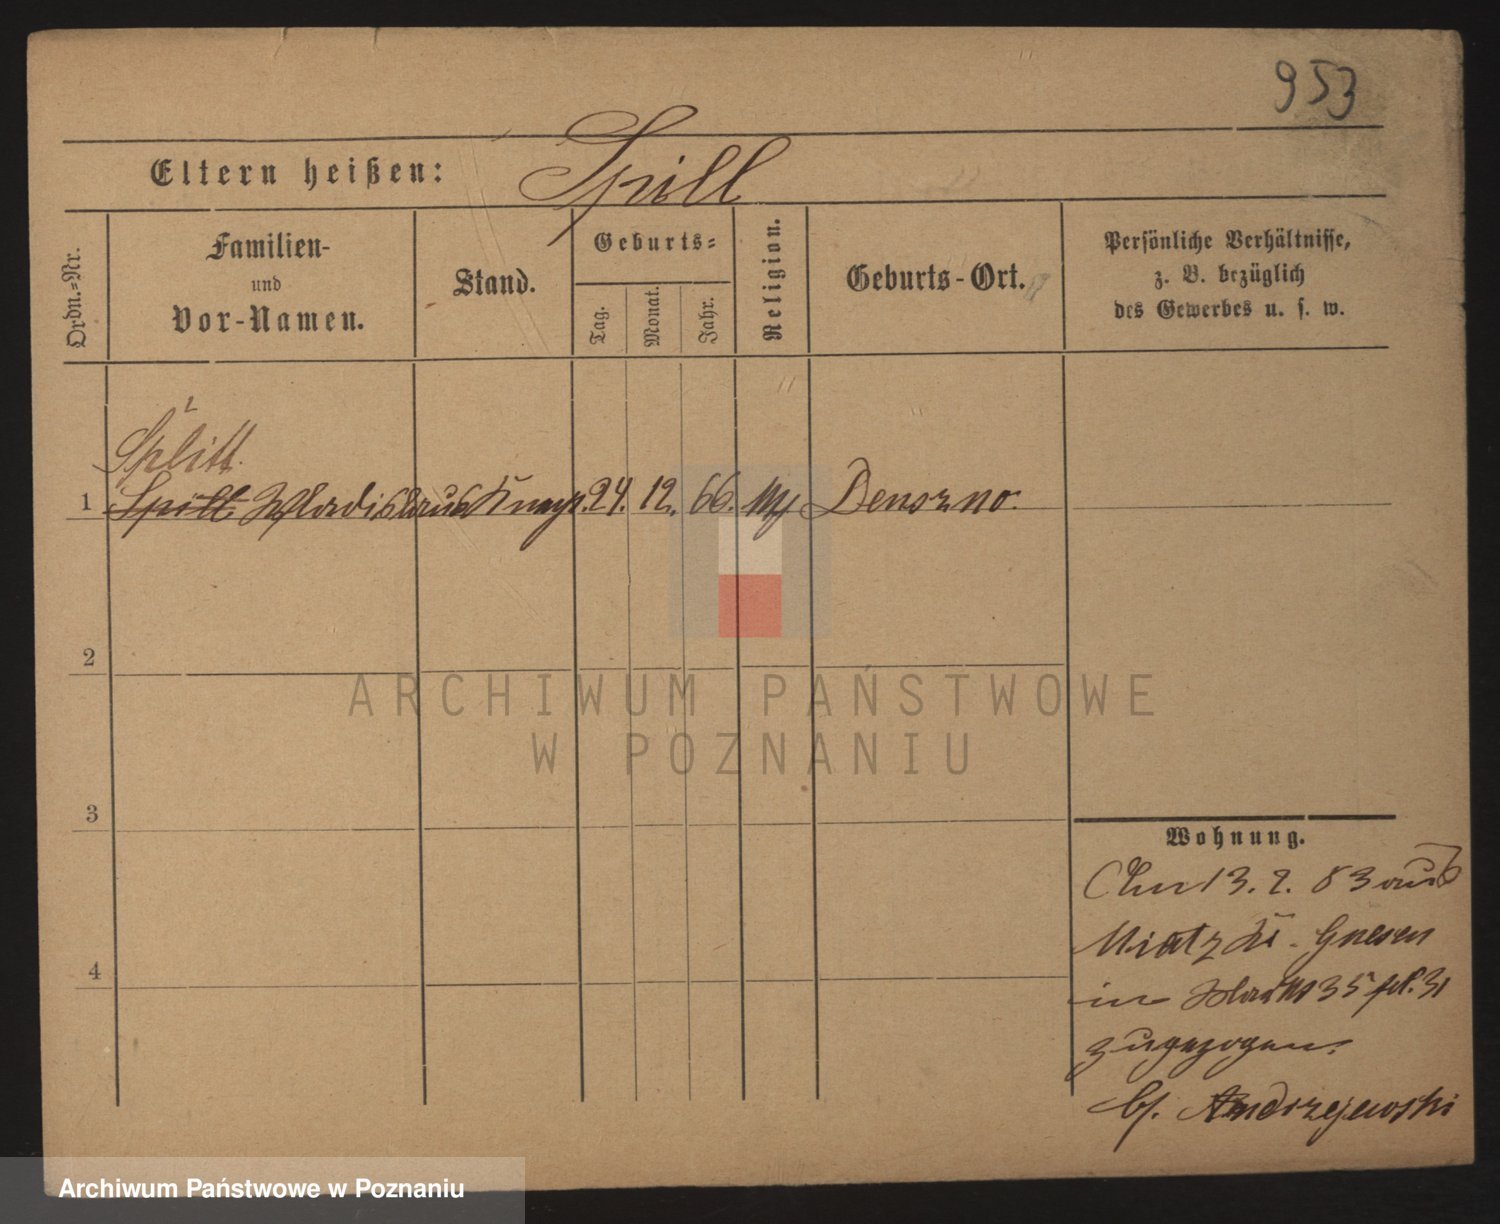 953
Eltern heißen: Spill
Ordn.-Nr.
Familien-
und
Vor-Namen.
Stand.
Geburts-
Tag.
Monat.
Jahr.
Religion.
Geburts-Ort.
Persönliche Verhältnisse,
z. B. bezüglich
des Gewerbes u. s. w.
Splitt
1 Spill Wladislaus 24. 12. 66.
2
3
4
Wohnung.
13. 2. 83 aus
Gnesen
in 35
zugezogen.
bf. Andrzejewski
ARCHIWUM PAŃSTWOWE
W POZNANIU
Archiwum Państwowe w Poznaniu